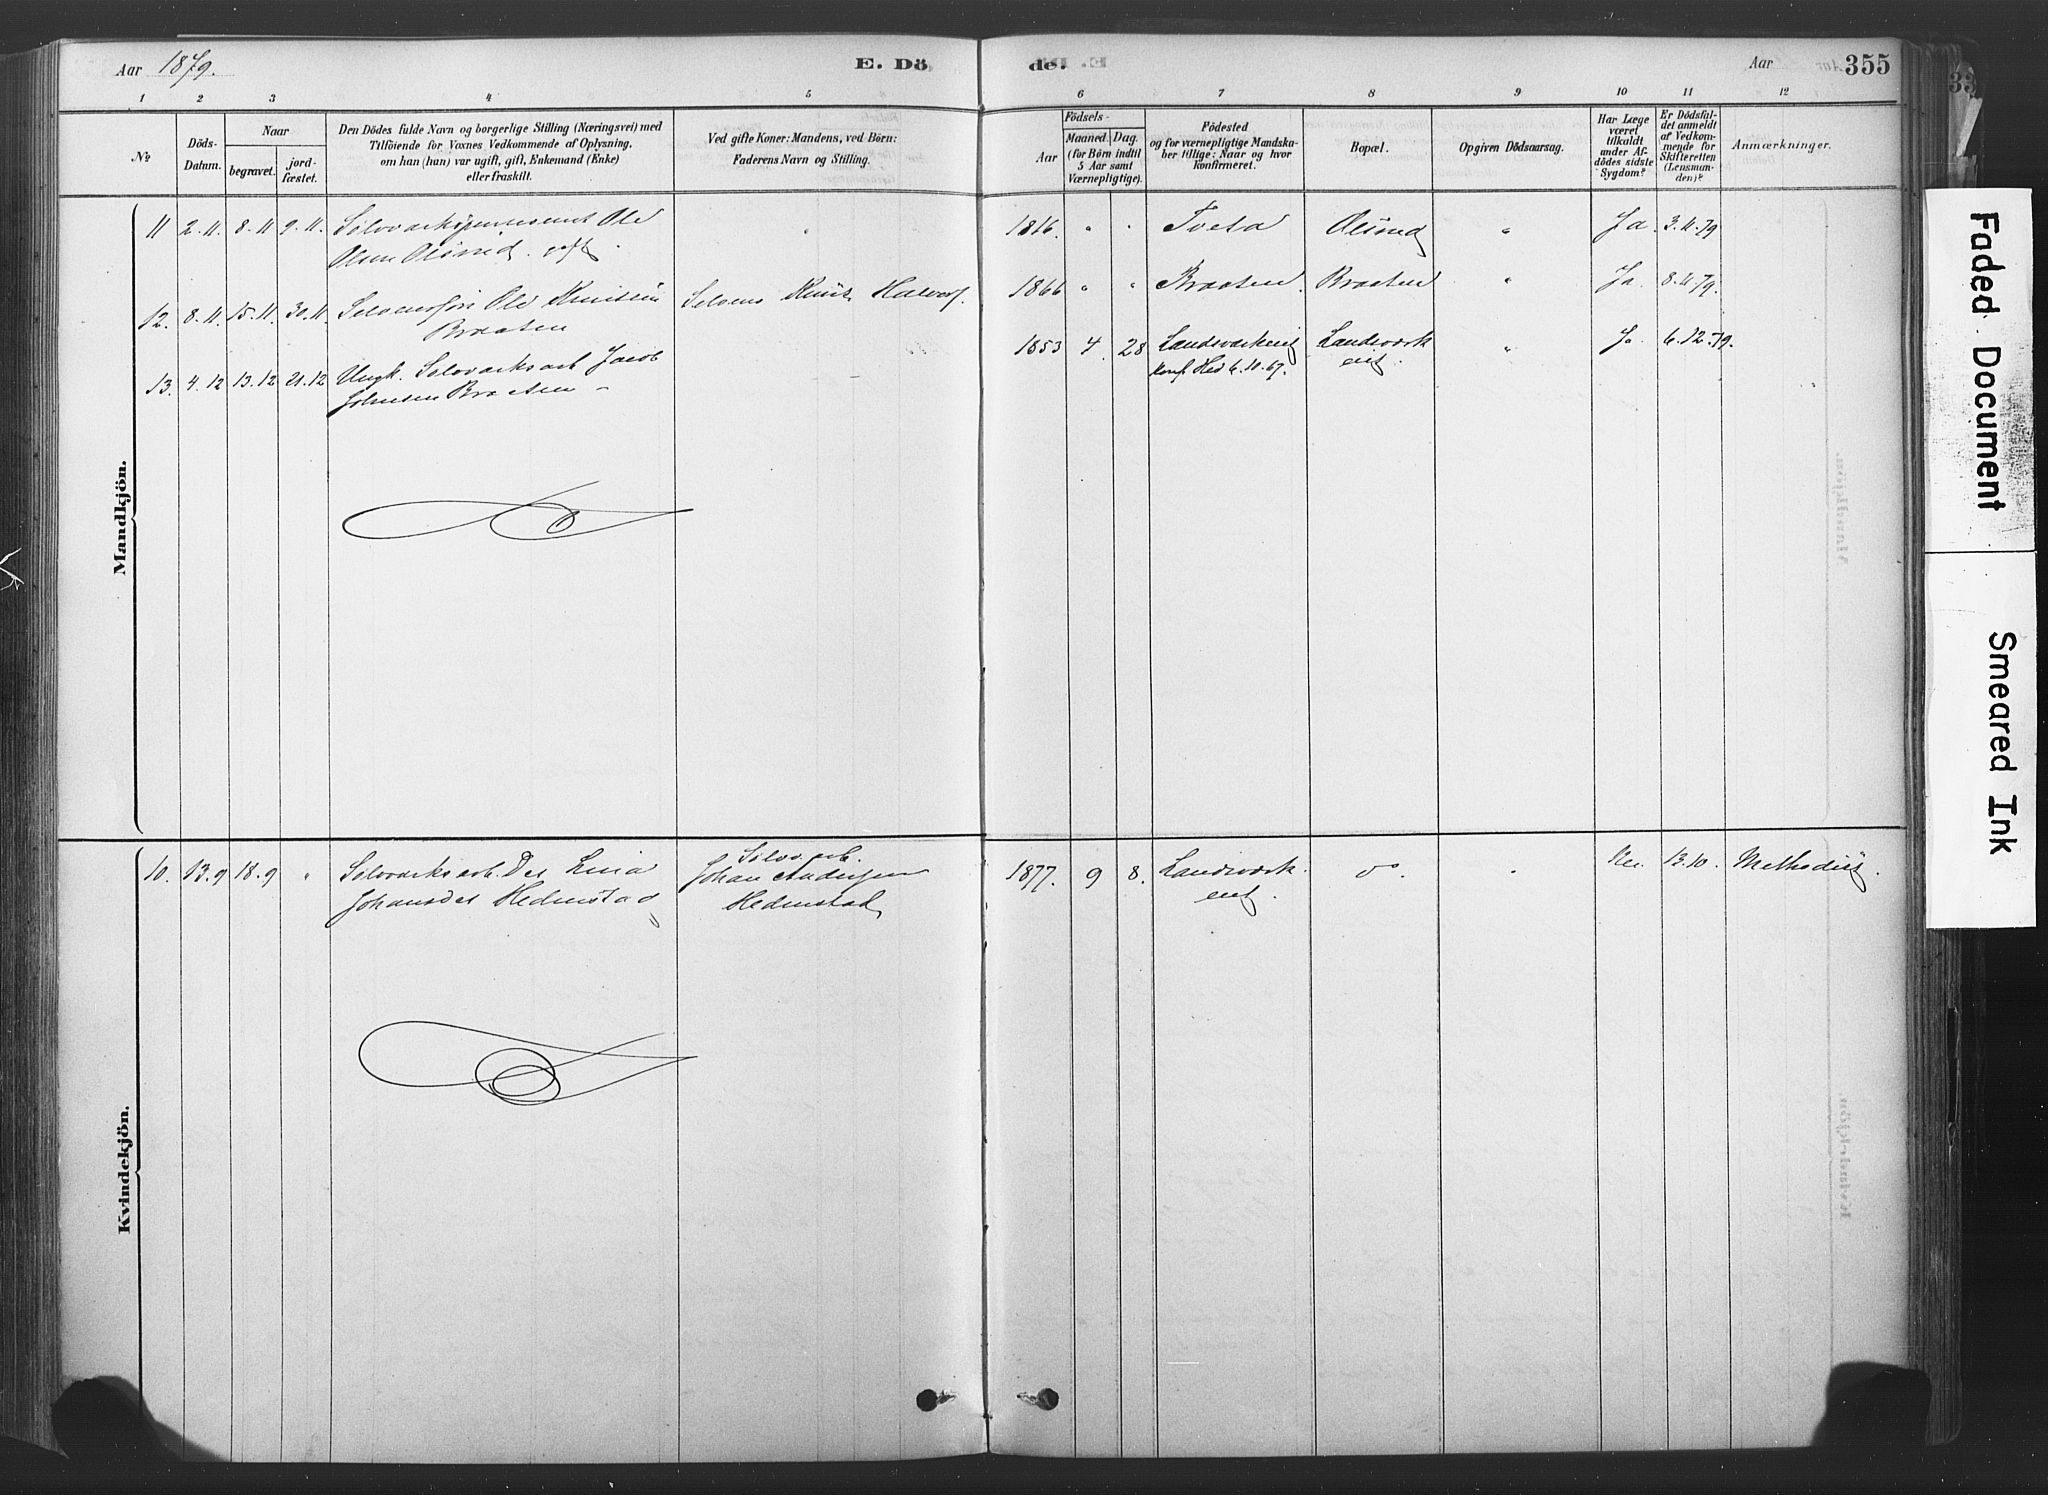 Aar 1879.
E. Dö
de.
Aar
355
1 2 3 4 5 6 7 8 9 10 11 12
№
Döds-Datum.
Naar
begravet.
jord-fæstet.
Den Dödes fulde Navn og borgerlige Stilling (Næringsvei) med
Tilföiende for Voxnes Vedkommende af Oplysning,
om han (hun) var ugift, gift, Enkemand (Enke)
eller fraskilt.
Ved gifte Koner: Mandens, ved Börn:
Faderens Navn og Stilling.
Födsels-
Aar
Maaned. Dag.
(for Börn indtil
5 Aar samt
Værnepligtige).
Födested
og for værnepligtige Mandska-
ber tillige: Naar og hvor
konfirmeret.
Bopæl.
Opgiven Dödsaarsag.
Har Læge
været
tilkaldt
under Af-
dödes sidste
Sygdom?
Er Dödsfal-
det anmeldt
af Vedkom-
mende for
Skifteretten
(Lensman-
den)?
Anmærkninger.
Mandkjön.
11 2.11. 8.11 9.11. Ole 1816. " Tveta " Ja. 3.11.79
Olsen
12. 8.11. 15.11. 30.11. Ole Knutsen Knut Halvors. 1866 " " Braaten Braaten " Ja. 8.11.79.
Braaten
13. 4.12 13.12 21.12 Ungk. Sølvverksarb Jacob 1853 4. 28 Landsverk " Ja. 6.12.79.
Johnsen Braaten konf. Hed 6.10.67.
Kvindekjön.
10. 13.9 18.9 " Sølvverksarb. Dat. Lina Sølvv. arb. 1877. 9 8. Landsverk do. Nei. 13.10. Methodist.
Johansdat Hedenstad Johan Andersen
Hedenstad
Faded Document
Smeared Ink